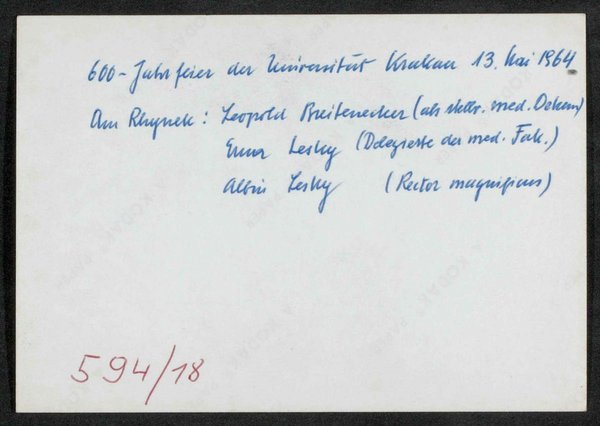 600-Jahrfeier der Universität Krakau 13. Mai 1964
Am Rhynek: Leopold Breitenecker (als stellv. med. Dekan)
Erna Lesky (Delegierte der med. Fak.)
Albin Lesky (Rector magnificus)
594/18